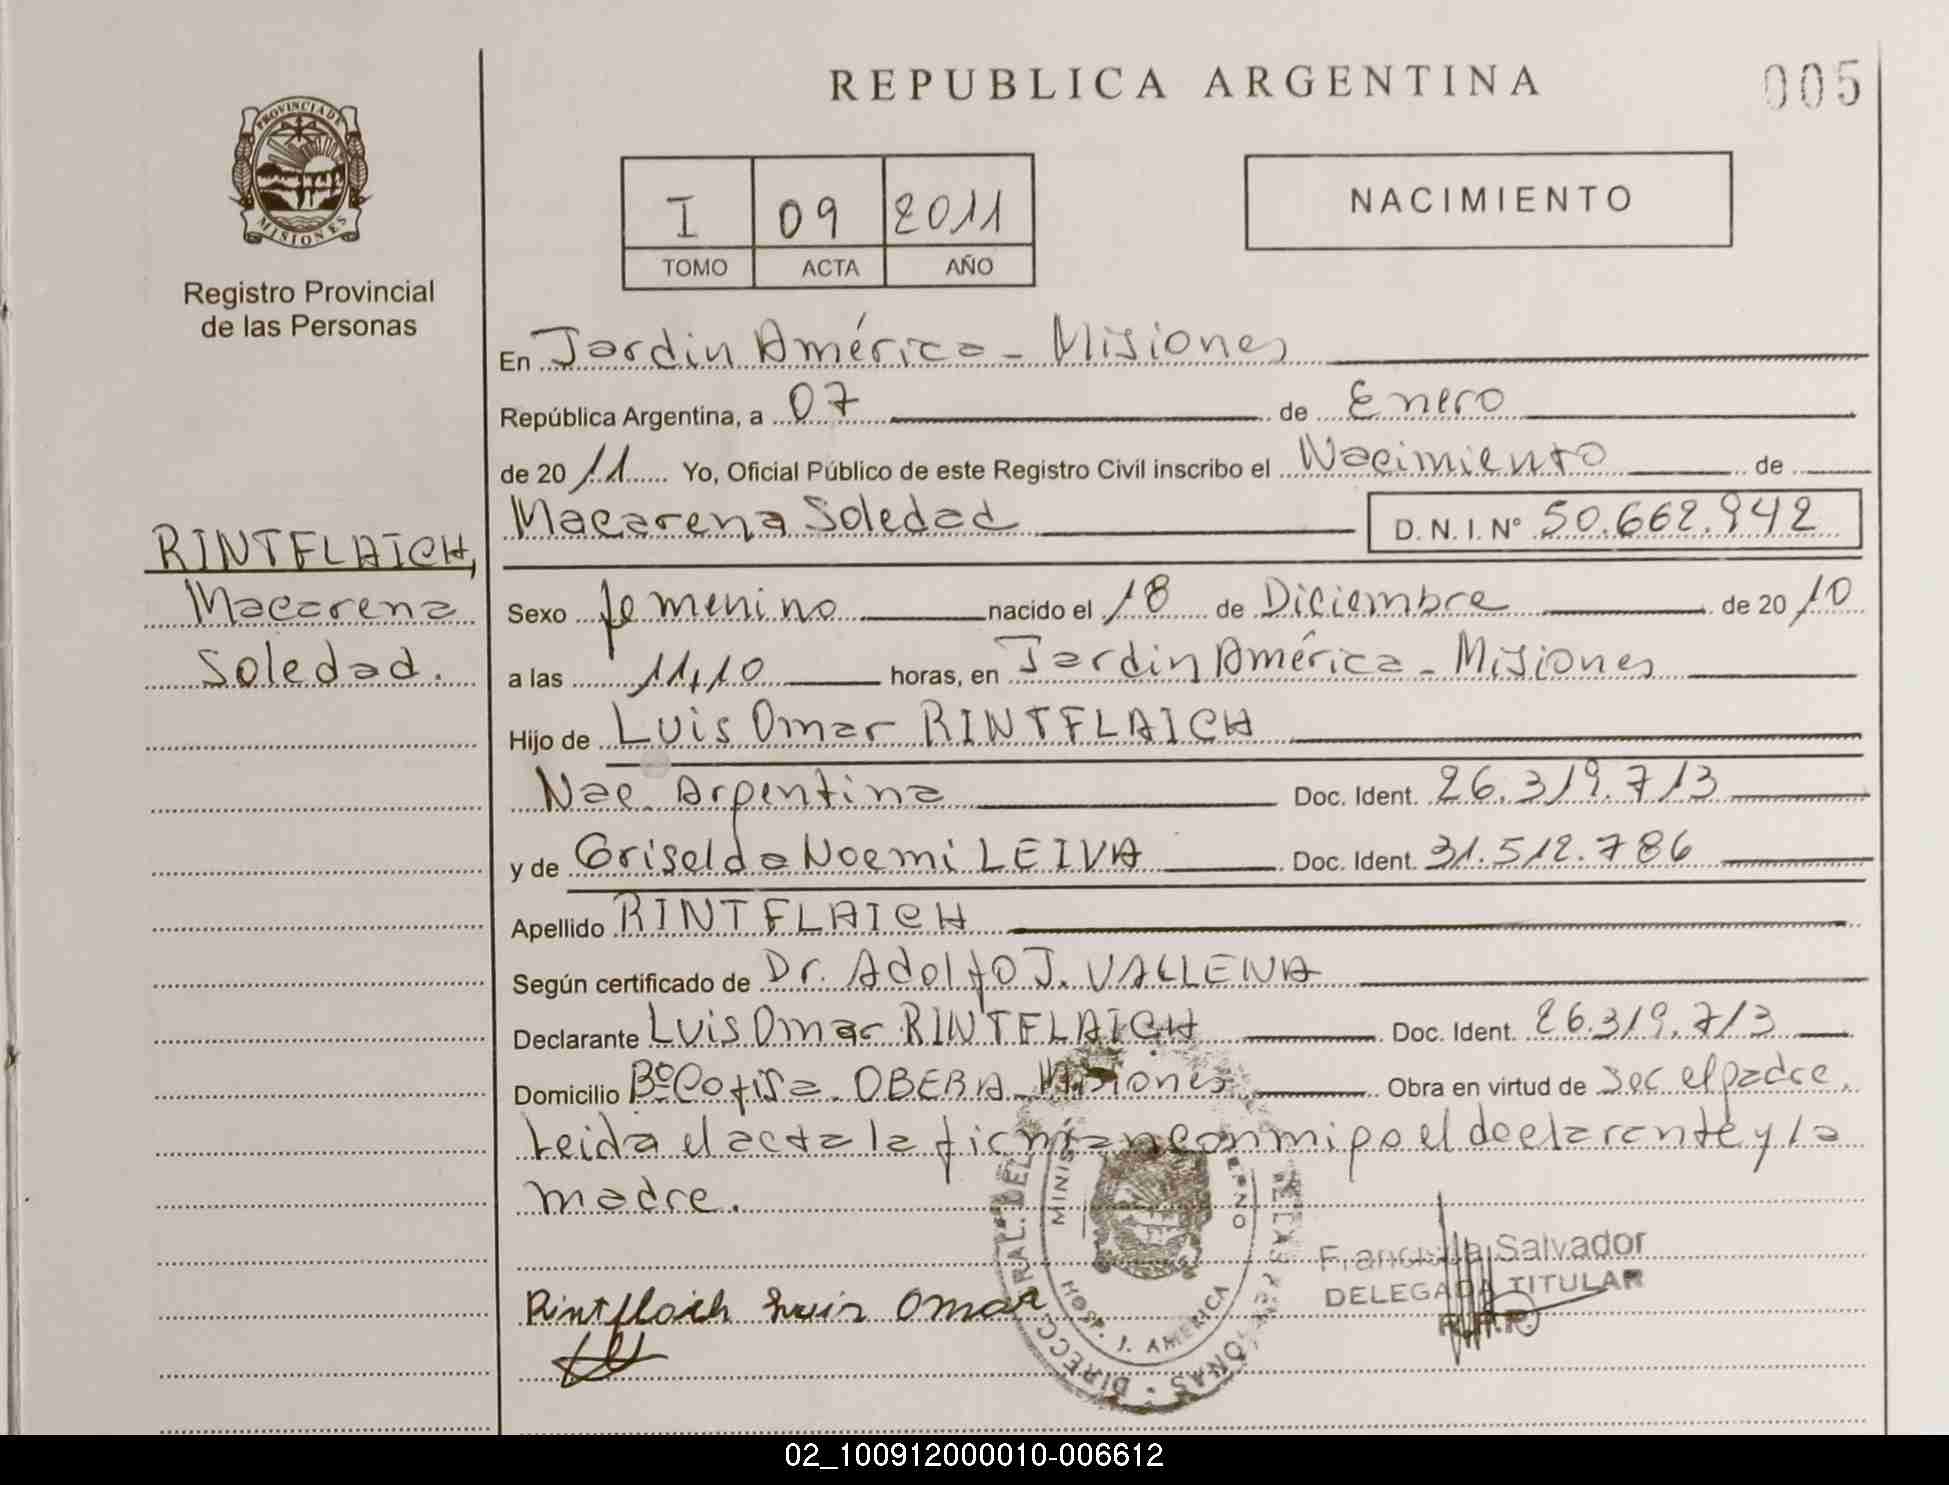 REPUBLICA ARGENTINA
005
PROVINCIA DE
MISIONES
Registro Provincial
de las Personas
I 09 2011
TOMO ACTA AÑO
NACIMIENTO
En Jardin América - Misiones
República Argentina, a 07 de Enero
de 20 11 Yo, Oficial Público de este Registro Civil inscribo el Nacimiento de
Macarena Soledad D. N. I. N° 50.662.942
RINTFLAICH,
Macarena
Soledad.
Sexo femenino nacido el 18 de Diciembre de 20 10
a las 11,10 horas, en Jardin América - Misiones
Hijo de Luis Omar RINTFLAICH
Nac. Argentina Doc. Ident. 26.319.713
y de Griselda Noemi LEIVA Doc. Ident. 31.512.786
Apellido RINTFLAICH
Según certificado de Dr. Adolfo J. VALLENA
Declarante Luis Omar RINTFLAICH Doc. Ident. 26.319.713
Domicilio Bº Cofisa - OBERA - Misiones Obra en virtud de ser el padre.
Leida el acta la firman conmigo el declarante y la
madre.
Salvador
DELEGADA TITULAR
R.P.P.
Rintflaich Luis Omar
HOSP. J. AMERICA
02_100912000010-006612